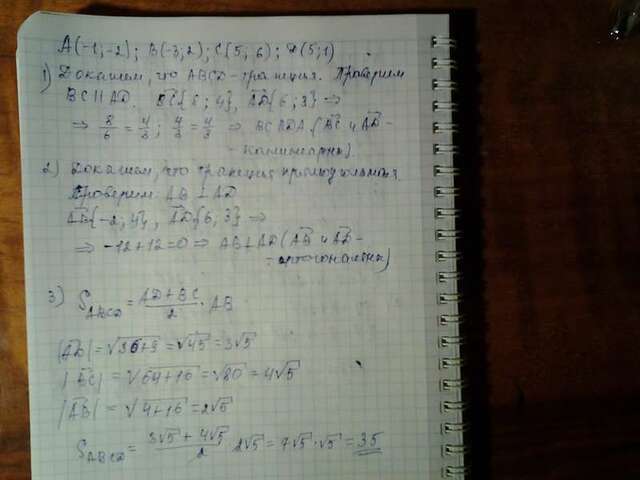 A(-1;-2); B(-3;2); C(5;6); D(5;1)
1) Докажем, что ABCD-трапеция. Проверим
BC||AD. BC{8;4}, AD{6;3} ⇒
⇒ 8/6 = 4/3; 4/3 = 4/3 ⇒ BC||DA (BC и AD-
-коллинеарны).
2) Докажем, что трапеция прямоугольная.
Проверим AB ⊥ AD
AB{-2,4}, AD{6,3} ⇒
⇒ -12+12=0 ⇒ AB⊥AD (AB и AD-
-ортогональны)
3) S_ABCD = (AD+BC)/2 · AB
|AD| = √36+9 = √45 = 3√5
|BC| = √64+16 = √80 = 4√5
|AB| = √4+16 = 2√5
S_ABCD = (3√5 + 4√5)/2 2√5 = 7√5·√5 = 35